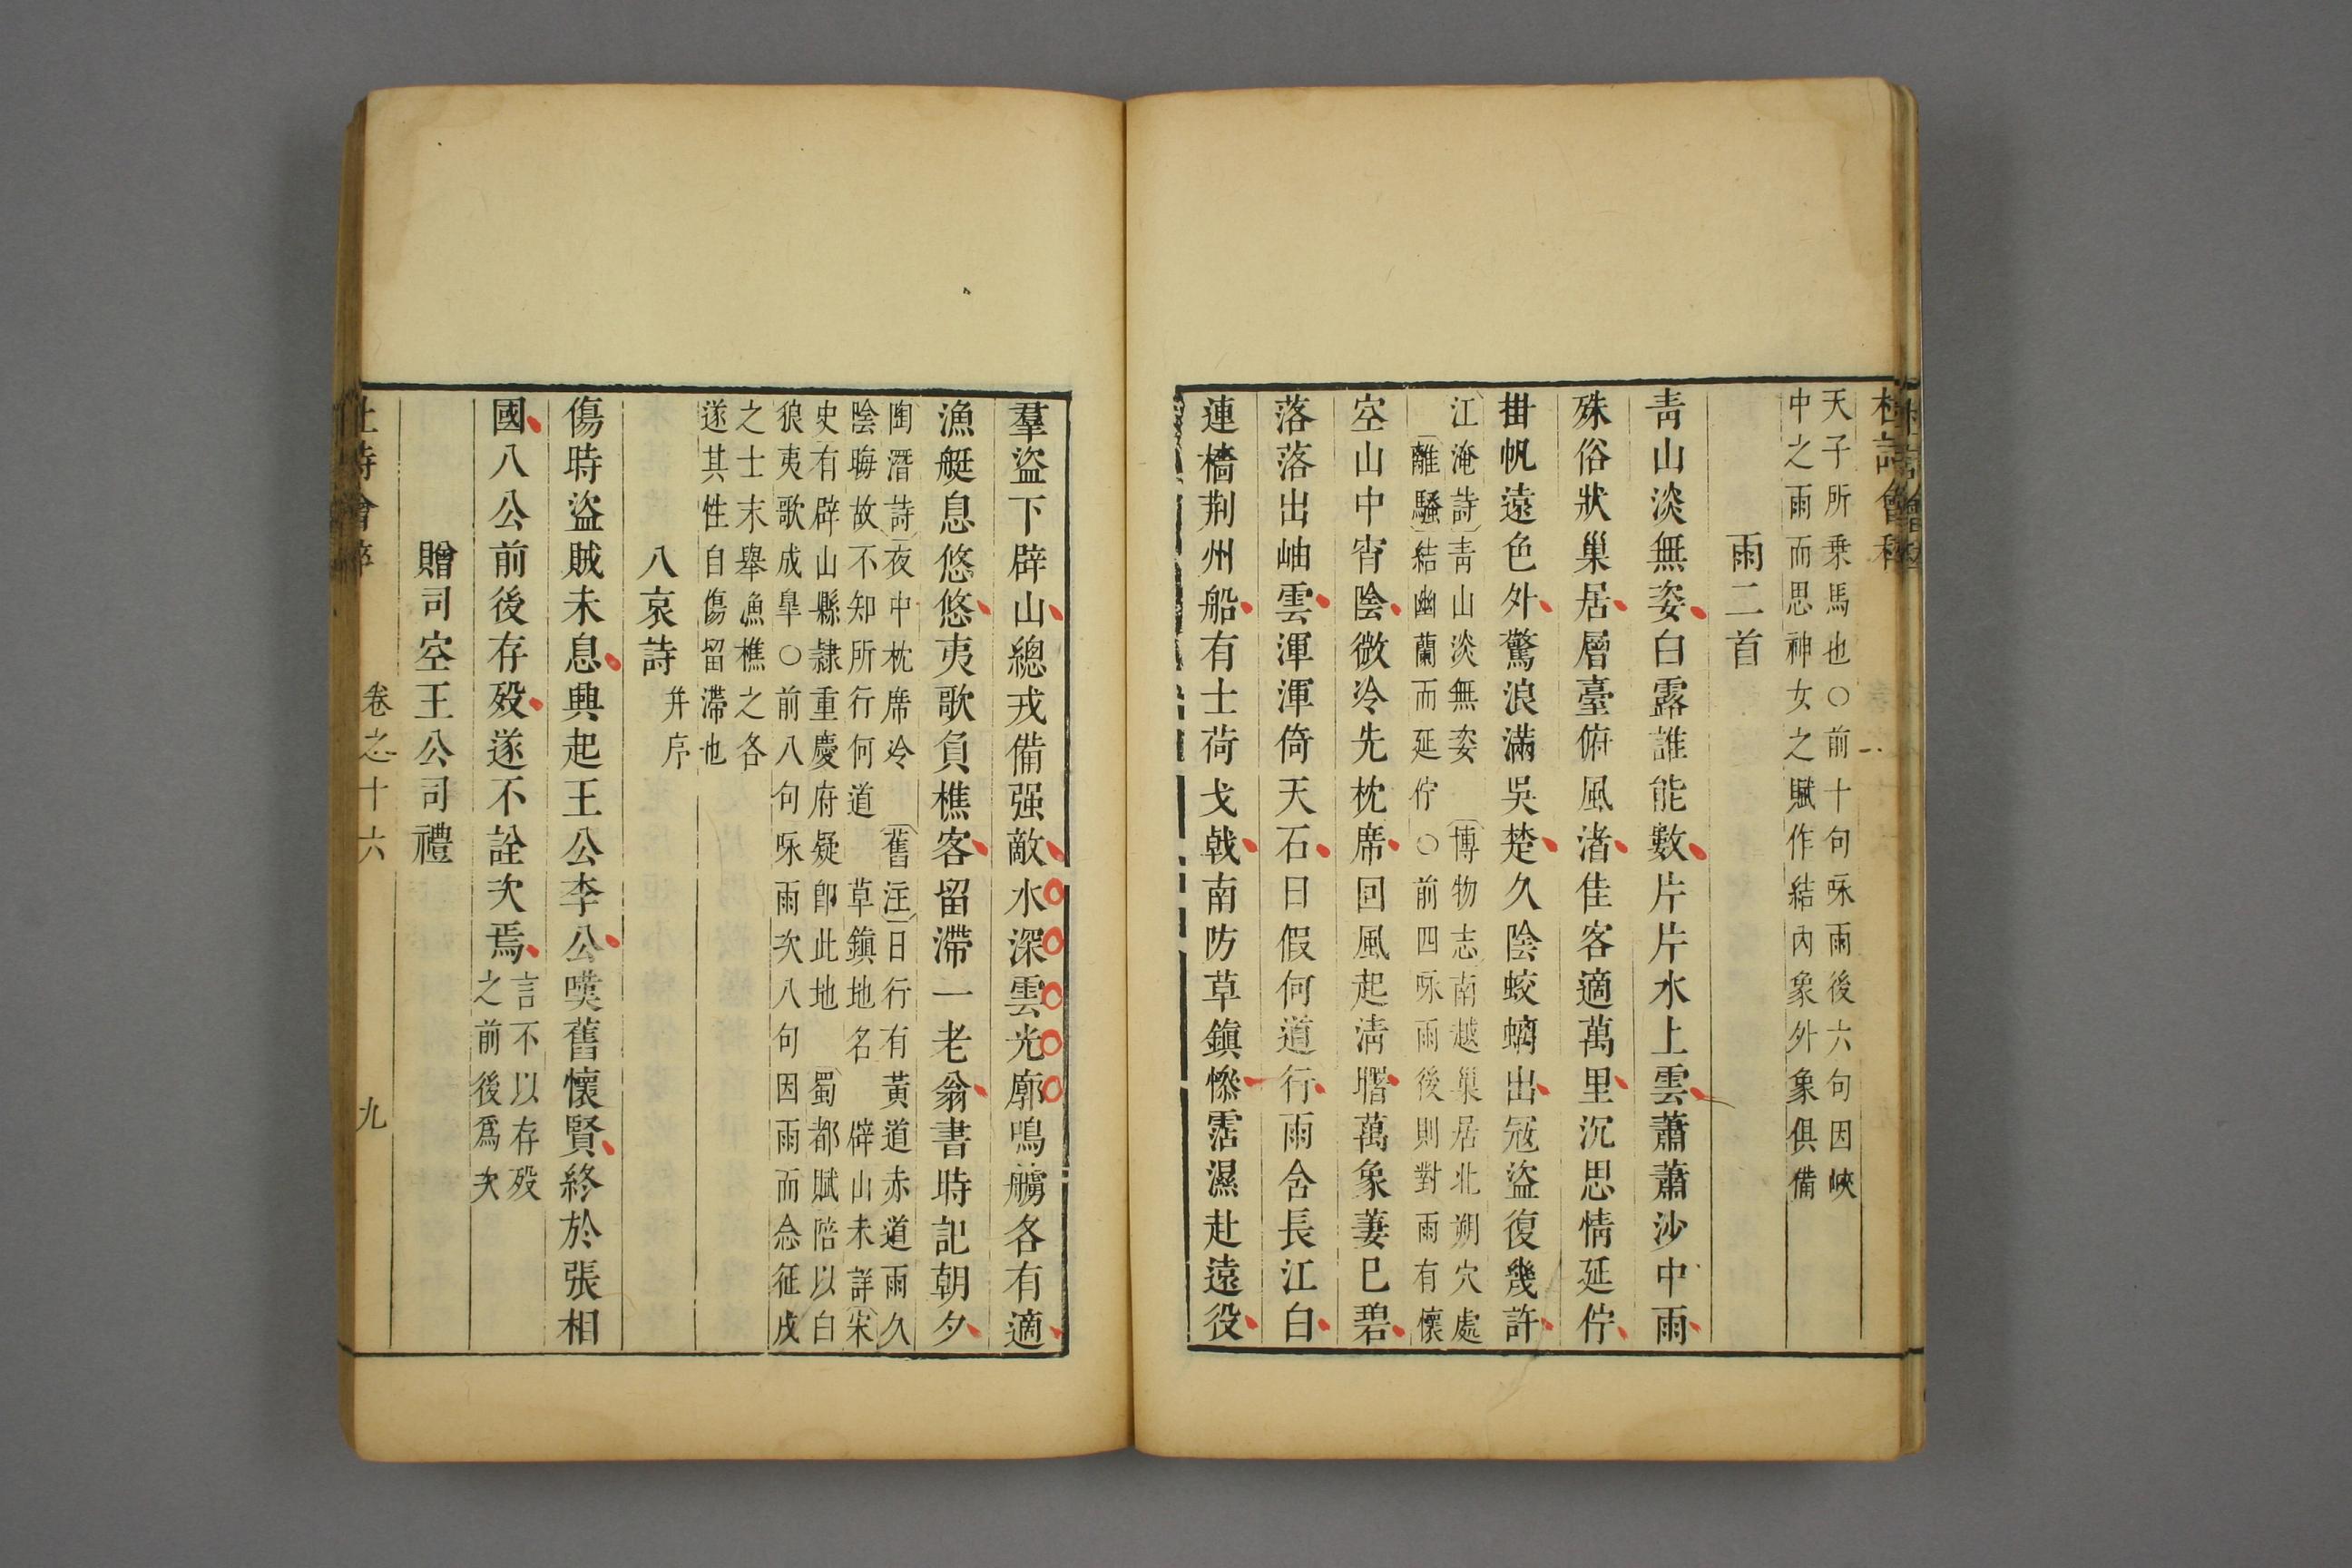 天子所乗馬也○前十句咏雨後六句因峽
中之雨而思神女之賦作結內象外象俱備
雨二首
青山淡無姿白露誰能數片片水上雲蕭蕭沙中雨
殊俗狀巢居層臺俯風渚佳客適萬里沉思情延佇
掛帆遠色外驚浪滿吳楚久陰蛟螭出冦盜復幾許
江淹詩青山淡無姿 博物志南越巢居北朔穴處
離騷結幽蘭而延佇○前四咏雨後則對雨有懷
空山中宵陰微冷先枕席回風起淸曙萬象萋已碧
落落出岫雲渾渾倚天石日假何道行雨含長江白
連檣荆州船有士荷戈戟南防草鎭慘霑濕赴遠役
羣盜下辟山總戎備强敵水深雲光廓鳴艣各有適
漁艇息悠悠夷歌負樵客留滯一老翁書時記朝夕
陶潛詩夜中枕席冷 舊注日行有黃道赤道雨久
陰晦故不知所行何道 草鎭地名 辟山未詳宋
史有辟山縣隷重慶府疑卽此地 蜀都賦陪以白
狼夷歌成皐○前八句咏雨次八句因雨而念征戍
之士末舉漁樵之各
遂其性自傷留滯也
八哀詩 并序
傷時盜賊未息興起王公李公嘆舊懷賢終於張相
國八公前後存歿遂不詮次焉
言不以存歿
之前後爲次
贈司空王公司禮
杜詩會稡 卷之十六 九